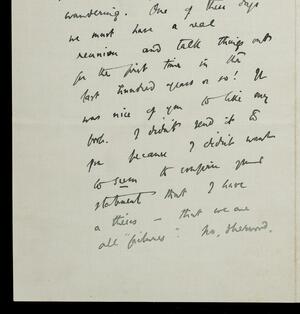 wandering. One of these days
we must have a real
reunion and talk things out
for the first time in the
last hundred years or so! It
was nice of you to like my
book. I didn't send it to
you because I didn't want
to seem to confirm your
statement that I have
a thesis – that we are
all "failures". No, Sherwood.